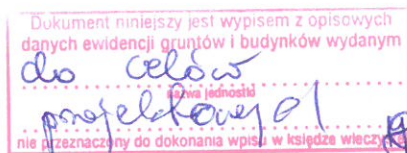 Dokument niniejszy jest wypisem z opisowych
danych ewidencji gruntów i budynków wydanym
do celów
nazwa jednostki
projektowych
nie przeznaczony do dokonania wpisu w księdze wieczys